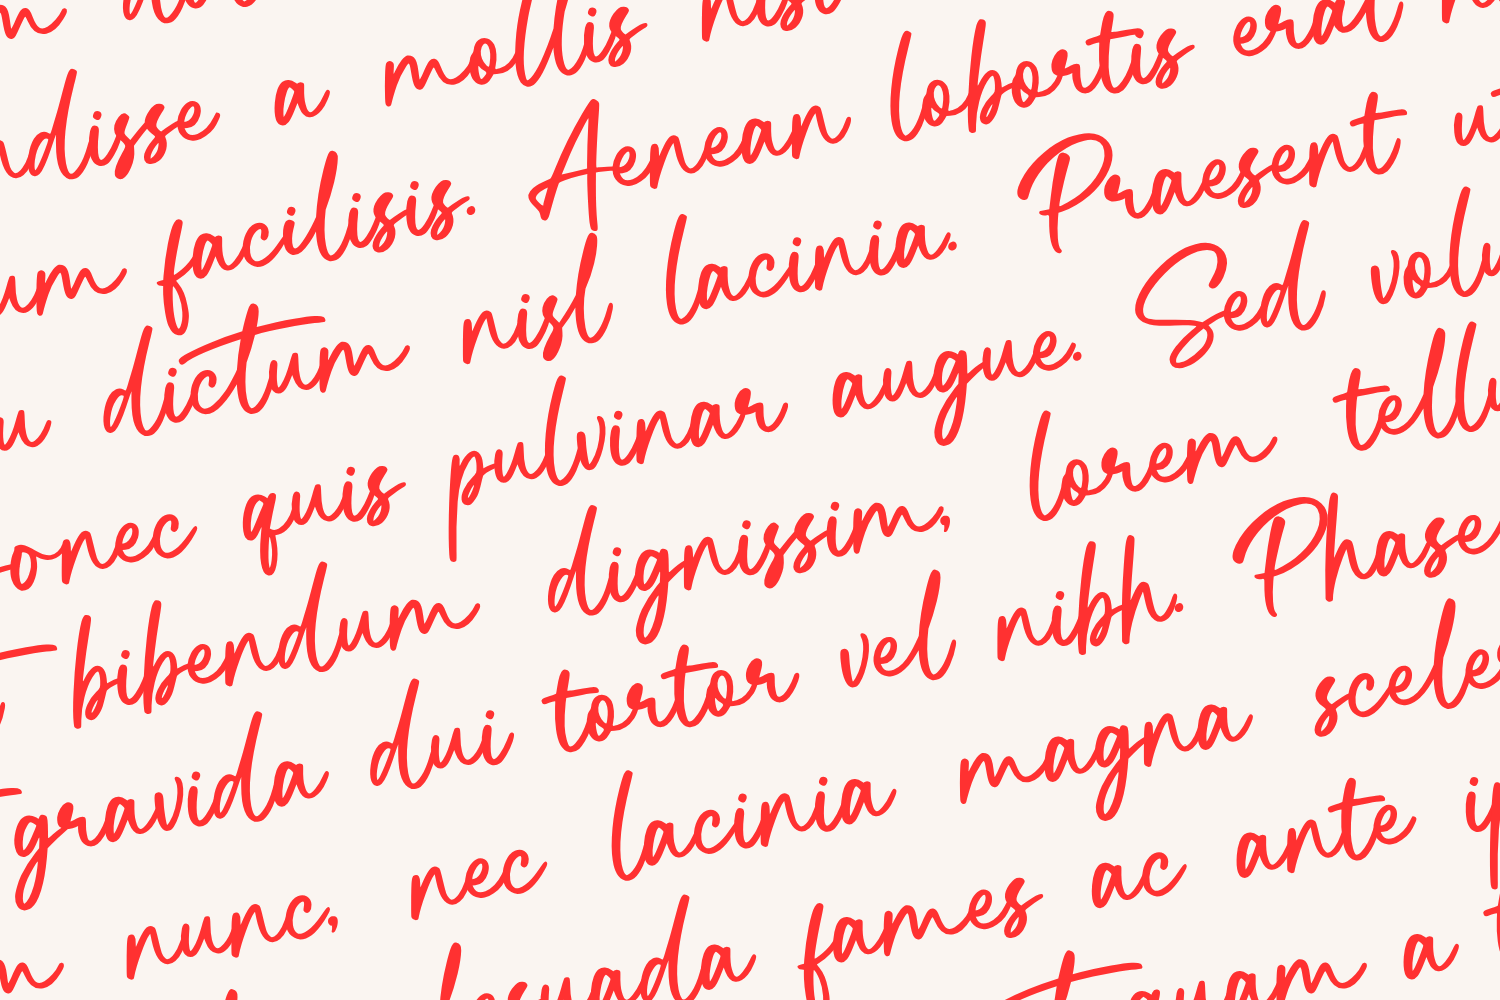 ndisse a mollis nisl
um facilisis. Aenean lobortis erat
u dictum nisl lacinia. Praesent ut
onec quis pulvinar augue. Sed volu
bibendum dignissim, lorem tellu
gravida dui tortor vel nibh. Phase
nunc, nec lacinia magna sceles
lesuada fames ac ante ip
quam a